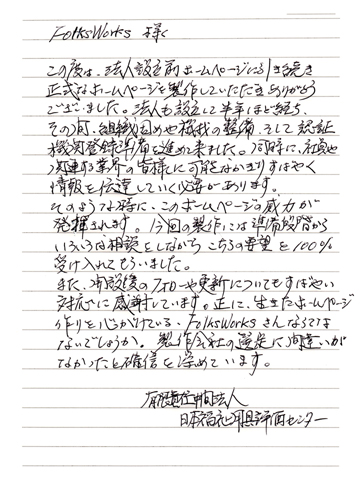 FolksWorks 様
この度は、法人設立前ホームページに引き続き
正式なホームページを製作していただきありがとう
ございました。法人も設立して半年ほど経ち、
その間、組織固めや機械の整備、そして認証
機関登録準備を進めて来ました。同時に、社会や
関連する業界の皆様に可能なかぎりすばやく
情報を伝達していく必要があります。
そのような時に、このホームページの威力が
発揮されます。今回の製作には準備段階から
いろいろな相談をしながら こちらの要望を100%
受け入れてもらいました。
また、開設後のフォローや更新についてもすばやい
対応に感謝しています。正に、生きたホームページ
作りを心がけている、FolksWorksさんならでは
ないでしょうか。製作会社の選定に間違いが
なかったと確信を深めています。
有限責任中間法人
日本福祉用具評価センター